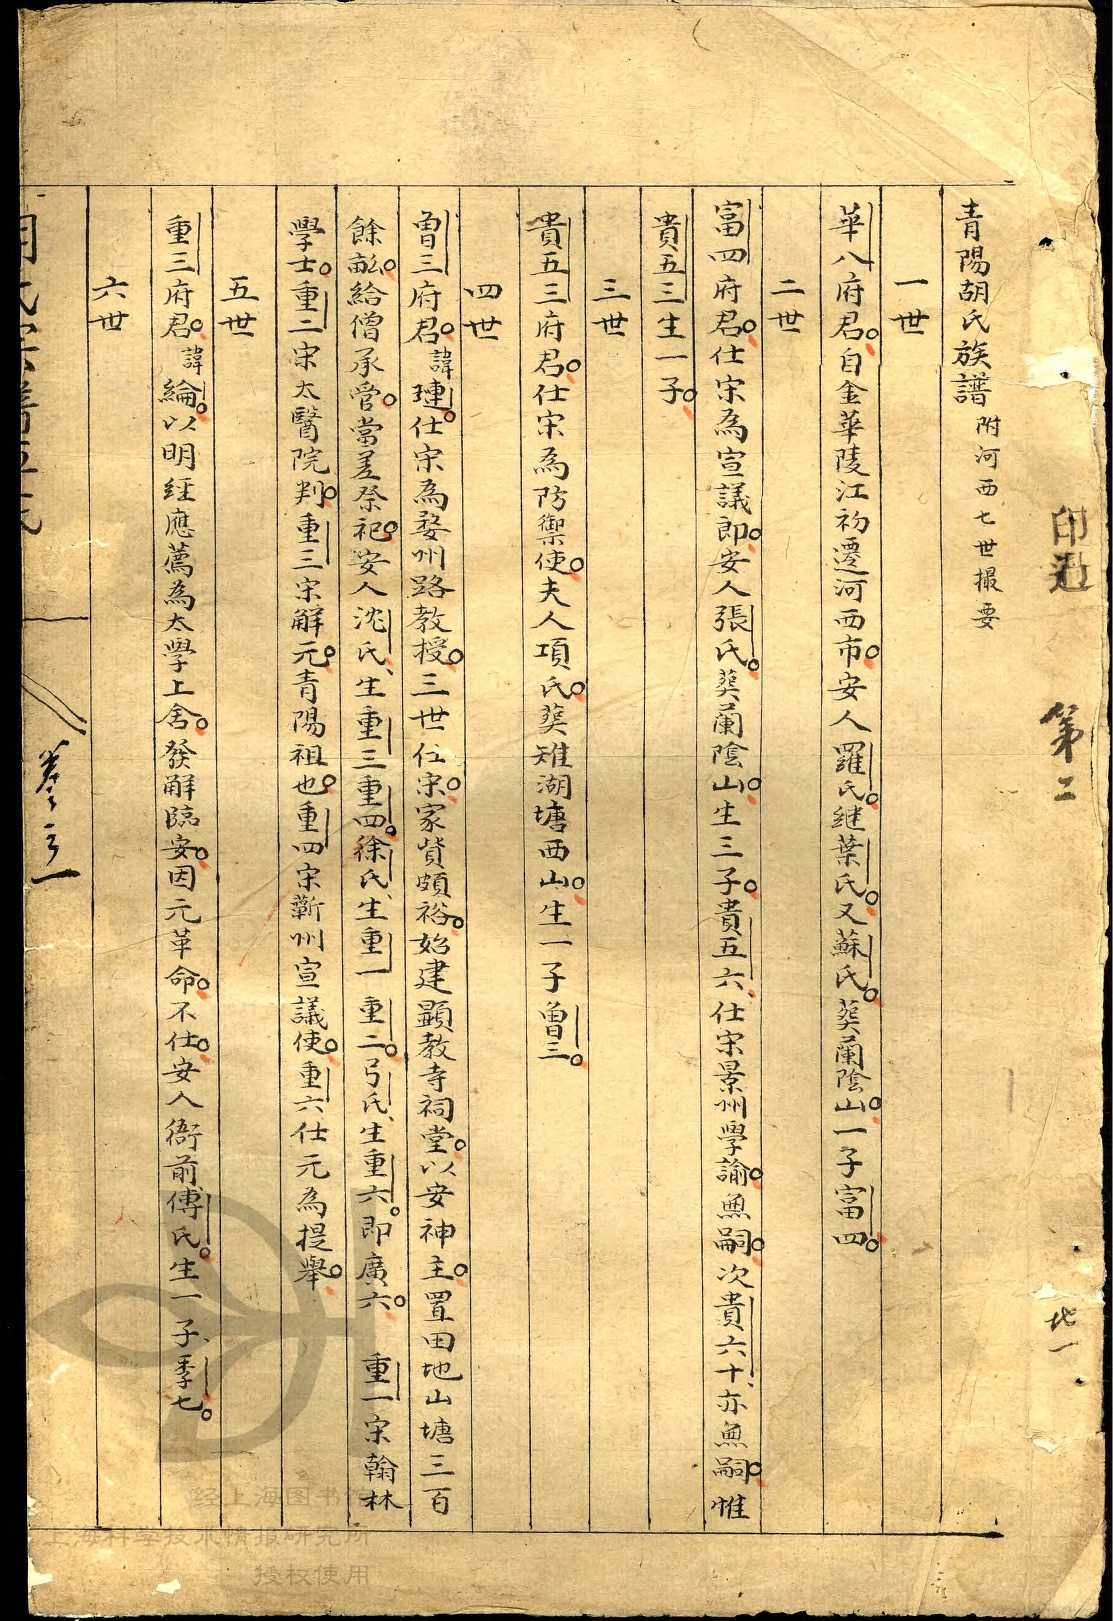 印過
第二
北一
青陽胡氏族譜 附河西七世撮要
一世
華八府君。自金華陵江初遷河西市。安人羅氏。継葉氏。又蘇氏。葵蘭陰山。一子富四。
二世
富四府君。仕宋為宣議郎。安人張氏。葵蘭陰山。生三子。貴五六、仕宋景州學諭。魚嗣。次貴六十、亦魚嗣。惟
貴五三生一子。
三世
貴五三府君。仕宋為防禦使。夫人項氏。葵雉湖塘西山。生一子曾三。
四世
曾三府君。諱璉。仕宋為婺州路教授。三世仕宋。家貲頗裕。始建顯教寺祠堂。以安神主。置田地山塘三百
餘畆。給僧承管。當差祭祀。安人沈氏、生重三重四。徐氏、生重一重二。弓氏、生重六。即廣六。 重一宋翰林
學士。重二宋太醫院判。重三宋解元。青陽祖也。重四宋蘄州宣議使。重六仕元為提舉。
五世
重三府君。諱綸。以明經應薦為太學上舍。發解臨安。因元革命。不仕。安人衙前傅氏。生一子、季七。
六世
胡氏宗譜
卷之一
经上海图书馆
上海科学技术情报研究所
授权使用